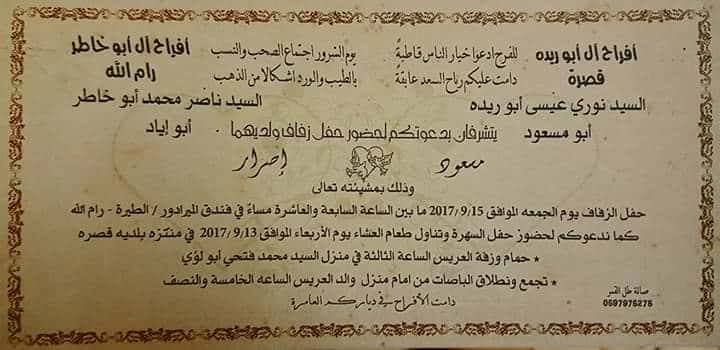 أفراح ال أبو ريده
قصرة
للفرح ادعوا خيار الناس قاطبةً
دامت عليكم رياح السعد عابقة
يوم السرور اجتماع الصحب والنسب
بالطيب والورد اشكالا من الذهب
أفراح ال أبو خاطر
رام الله
السيد نوري عيسى أبو ريده
السيد ناصر محمد أبو خاطر
أبو مسعود
يتشرفان بدعوتكم لحضور حفل زفاف ولديهما
أبو إياد
مسعود
إصرار
وذلك بمشيئته تعالى
حفل الزفاف يوم الجمعه الموافق 2017/9/15 ما بين الساعة السابعة والعاشرة مساءً في فندق الميرادور / الطيرة - رام الله
كما ندعوكم لحضوز حفل السهرة وتناول طعام العشاء يوم الأربعاء الموافق 2017/9/13 في منتزه بلديه قصره
* حمام وزفة العريس الساعة الثالثة في منزل السيد محمد فتحي أبو لؤي
* تجمع ونطلاق الباصات من امام منزل والد العريس الساعه الخامسة والنصف
دامت الأفراح في دياركم العامرة
صالة طل القمر
0597975275